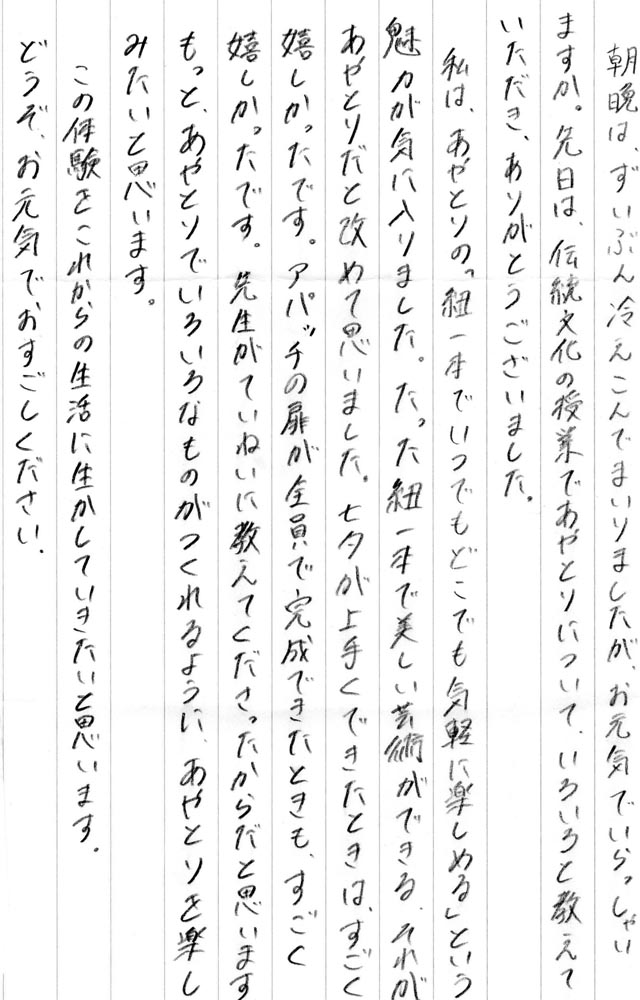 朝晩は、ずいぶん冷えこんでまいりましたが、お元気でいらっしゃい
ますか。先日は、伝統文化の授業であやとりについて、いろいろと教えて
いただき、ありがとうございました。
私は、あやとりの「紐一本でいつでもどこでも気軽に楽しめる」という
魅力が気に入りました。たった紐一本で美しい芸術ができる、それが
あやとりだと改めて思いました。七夕が上手くできたときは、すごく
嬉しかったです。アパッチの扉が全員で完成できたときも、すごく
嬉しかったです。先生がていねいに教えてくださったからだと思います
もっと、あやとりでいろいろなものがつくれるように、あやとりを楽し
みたいと思います。
この体験をこれからの生活に生かしていきたいと思います。
どうぞ、お元気でおすごしください。